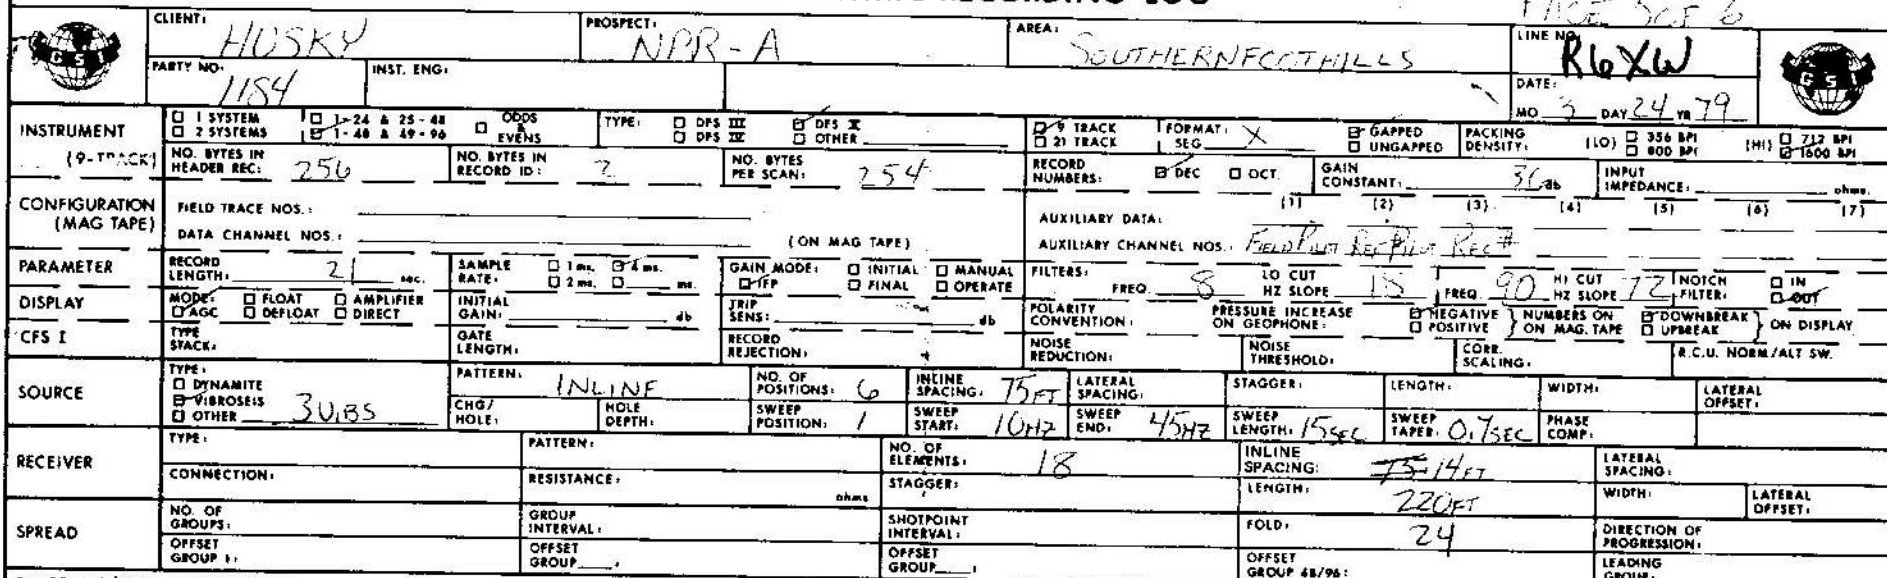 RECORDING LOG
PAGE 5 OF 6
CLIENT: HUSKY PROSPECT: NPR-A AREA: SOUTHERN FOOTHILLS LINE NO. R6XW
GSI GSI
PARTY NO: 1184 INST. ENG: DATE:
MO 3 DAY 24 YR 79
INSTRUMENT □ 1 SYSTEM □ 1-24 & 25-48 □ ODDS & EVENS TYPE: □ DFS III ☑ DFS V ☑ 9 TRACK FORMAT: X ☑ GAPPED PACKING (LO) □ 356 BPI (HI) □ 712 BPI
□ 2 SYSTEMS ☑ 1-48 & 49-96 □ DFS IV □ OTHER □ 21 TRACK SEG □ UNGAPPED DENSITY: □ 800 BPI ☑ 1600 BPI
(9-TRACK) NO. BYTES IN HEADER REC: 256 NO. BYTES IN RECORD ID: 2 NO. BYTES PER SCAN: 254 RECORD NUMBERS: ☑ DEC □ OCT. GAIN CONSTANT: 36 db INPUT IMPEDANCE: ohms.
CONFIGURATION FIELD TRACE NOS.: AUXILIARY DATA: (1) (2) (3) (4) (5) (6) (7)
(MAG TAPE) DATA CHANNEL NOS.: (ON MAG TAPE) AUXILIARY CHANNEL NOS.: FIELD PILOT REC PILOT REC #
PARAMETER RECORD LENGTH: 21 sec. SAMPLE RATE: □ 1 ms. ☑ 4 ms. □ 2 ms. □ ms. GAIN MODE: □ INITIAL □ MANUAL ☑ IFP □ FINAL □ OPERATE FILTERS: FREQ. 8 LO CUT HZ SLOPE 18 FREQ. 90 HI CUT HZ SLOPE 72 NOTCH FILTER: □ IN ☑ OUT
DISPLAY MODE: □ FLOAT □ AMPLIFIER ☑ AGC □ DEFLOAT □ DIRECT INITIAL GAIN: db TRIP SENS: db POLARITY CONVENTION: PRESSURE INCREASE ON GEOPHONE: ☑ NEGATIVE □ POSITIVE } NUMBERS ON ON MAG. TAPE ☑ DOWNBREAK □ UPBREAK } ON DISPLAY
CFS I TYPE STACK: GATE LENGTH: RECORD REJECTION: NOISE REDUCTION: NOISE THRESHOLD: CORR. SCALING: R.C.U. NORM/ALT SW.
SOURCE TYPE: □ DYNAMITE ☑ VIBROSEIS □ OTHER 3 VIBS PATTERN: INLINE NO. OF POSITIONS: 6 INLINE SPACING: 75 FT LATERAL SPACING: STAGGER: LENGTH: WIDTH: LATERAL OFFSET:
CHG/HOLE: HOLE DEPTH: SWEEP POSITION: 1 SWEEP START: 10HZ SWEEP END: 45HZ SWEEP LENGTH: 15SEC SWEEP TAPER: 0.7SEC PHASE COMP:
RECEIVER TYPE: PATTERN: NO. OF ELEMENTS: 18 INLINE SPACING: 14 FT LATERAL SPACING:
CONNECTION: RESISTANCE: ohms STAGGER: LENGTH: 220FT WIDTH: LATERAL OFFSET:
SPREAD NO. OF GROUPS: GROUP INTERVAL: SHOTPOINT INTERVAL: FOLD: 24 DIRECTION OF PROGRESSION:
OFFSET GROUP 1: OFFSET GROUP : OFFSET GROUP : OFFSET GROUP 48/96: LEADING GROUP: